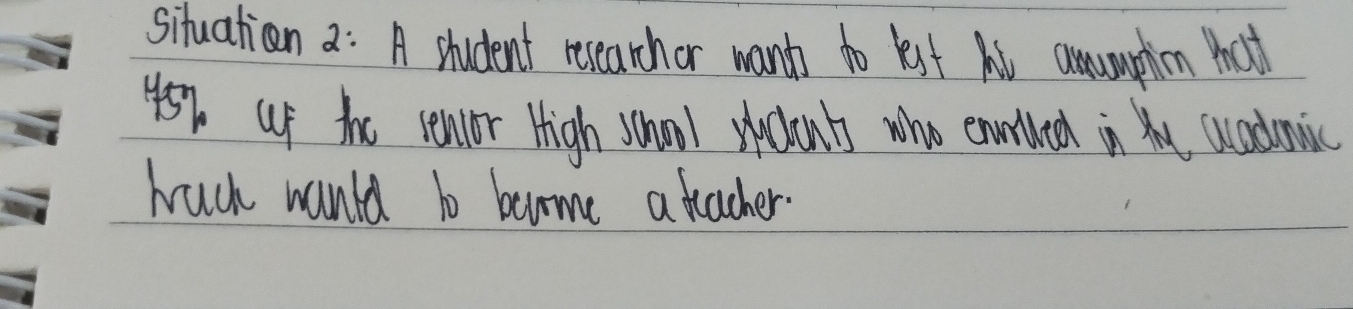 Situation 2: A student researcher wants to test his assumption that
45% of the senior High school students who enrolled in the academic
track wanted to become a teacher.